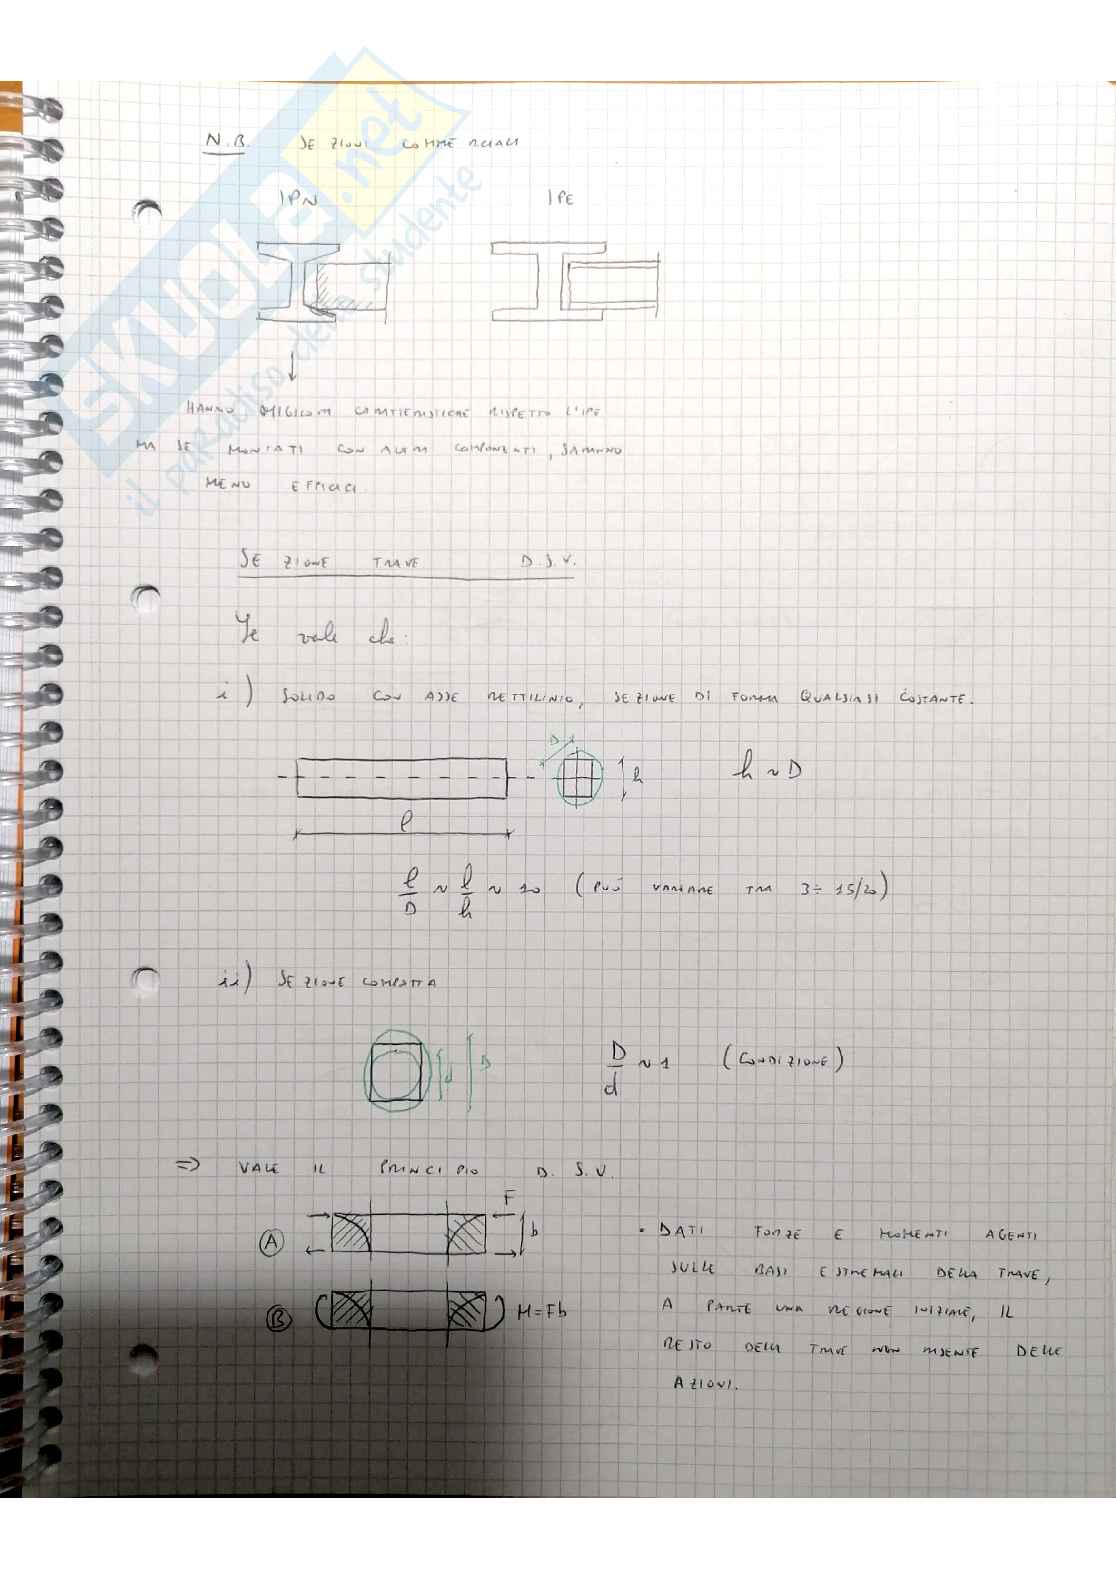 N.B. SEZIONI COMMERCIALI
IPN IPE
HANNO MIGLIORI CARATTERISTICHE RISPETTO L'IPE
MA SE MONTATI CON ALTRI COMPONENTI, SARANNO
MENO EFFICACI
SEZIONE TRAVE D.S.V.
Se vale che:
i) SOLIDO CON ASSE RETTILINIO, SEZIONE DI FORMA QUALSIASI COSTANTE.
D
h
h ~ D
l
l/D ~ l/h ~ 10 (PUÒ VARIARE TRA 3÷15/20)
ii) SEZIONE COMPATTA
d D
D/d ~ 1 (CONDIZIONE)
=> VALE IL PRINCIPIO D.S.V.
A F b
B M=Fb
• DATI FORZE E MOMENTI AGENTI
SULLE BASI ESTREMALI DELLA TRAVE,
A PARTE UNA REGIONE INIZIALE, IL
RESTO DELLA TRAVE NON RISENTE DELLE
AZIONI.
SKUOLA.net
il paradiso dello studente